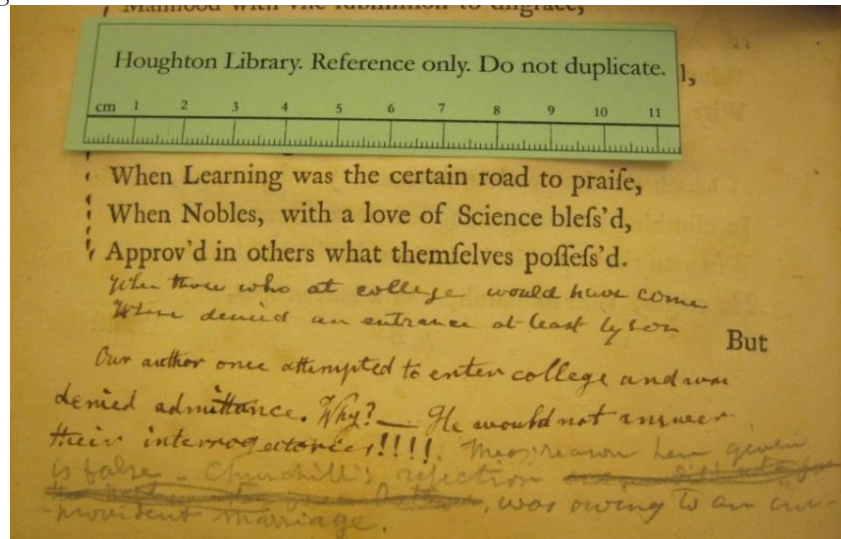 Manhood with the
Houghton Library. Reference only. Do not duplicate.
l,
cm 1 2 3 4 5 6 7 8 9 10 11
When Learning was the certain road to praiſe,
When Nobles, with a love of Science bleſs'd,
Approv'd in others what themſelves poſſeſs'd.
When those who at college would have come
Where denied an entrance at least by son
But
Our author once attempted to enter college and was
denied admittance. Why? — He wouldnot answer
their interrogatories!!!! reason here given
is false – Churchill's rejection
, was owing to an im-
provident marriage.